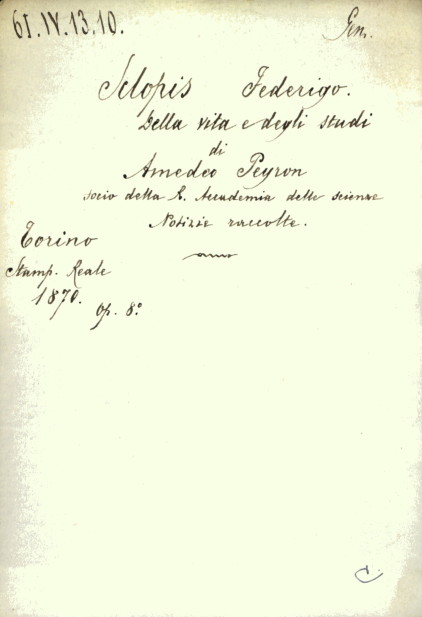 61.IV.13.10.
Gen.
Sclopis Federigo.
Della vita e degli studi
di
Amedeo Peyron
socio della R. Accademia delle scienze
Notizie raccolte.
Torino
Stamp. Reale
1870. Op. 8º